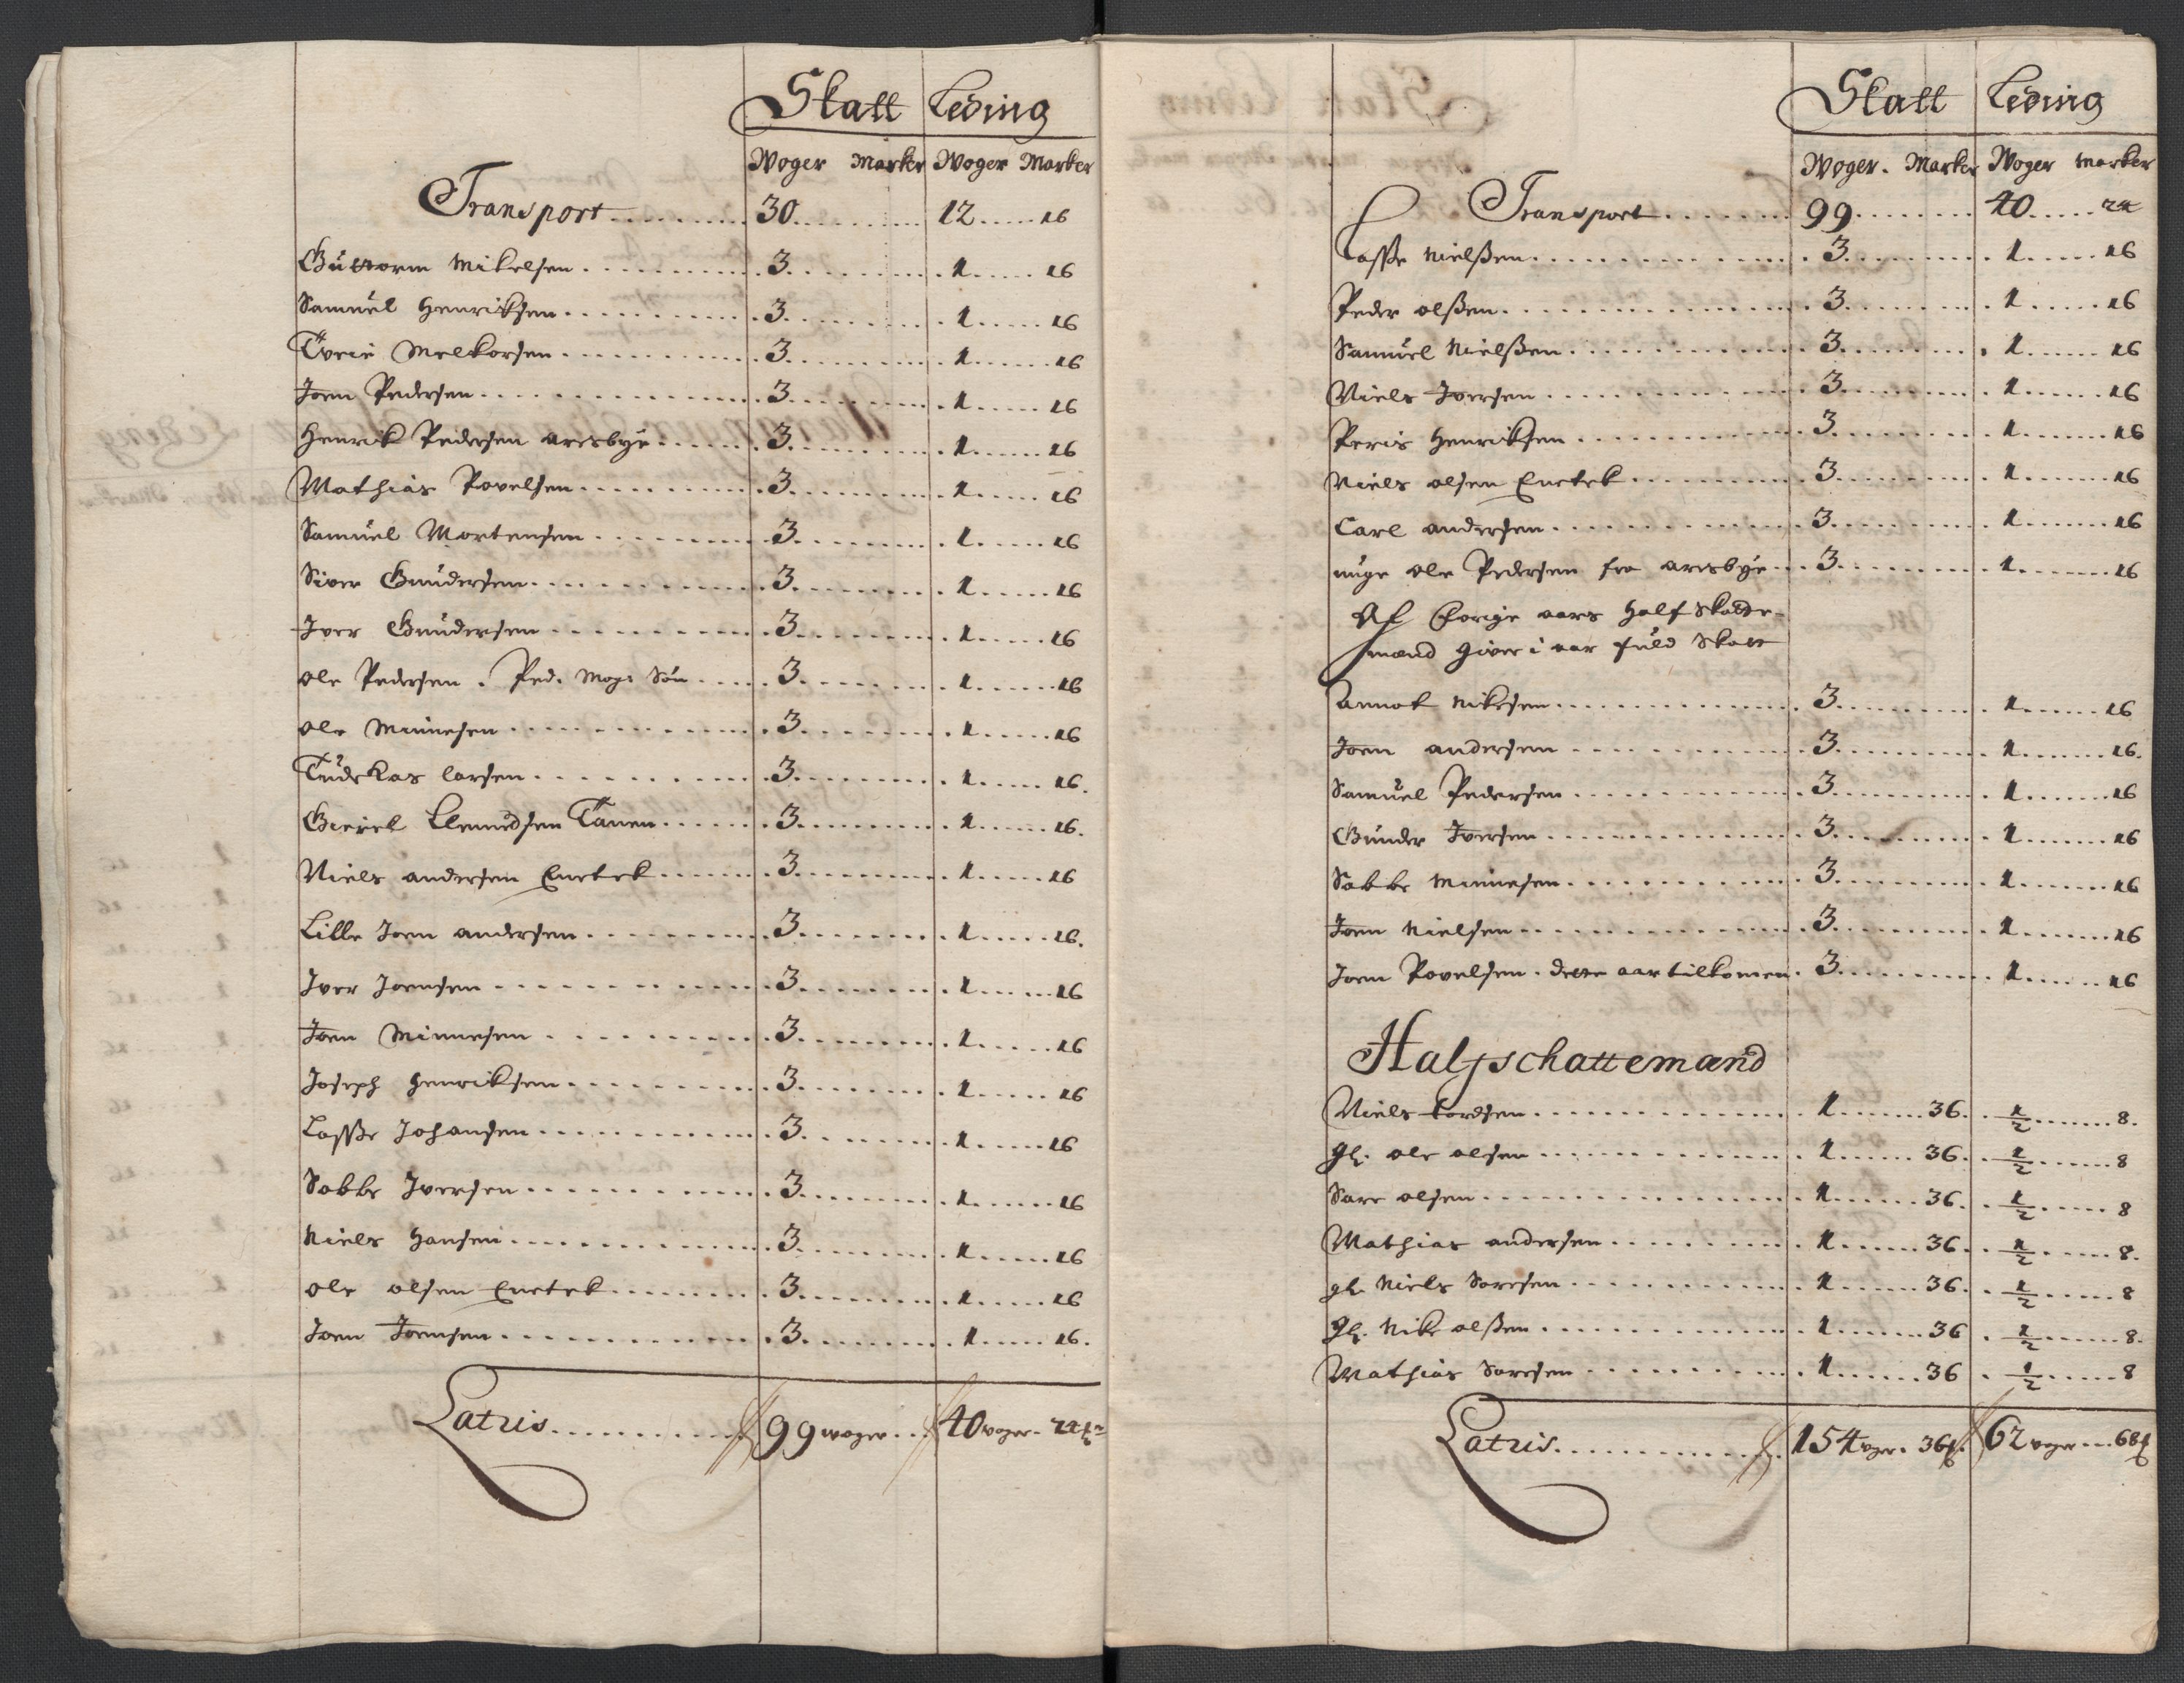 Skatt Leding
Woger Marker Woger Marker
Transport 30 12 16
Guttorm Mikelsen 3 1 16
Samuel Henriksen 3 1 16
Melkorsen 3 1 16
Joen Pedersen 3 1 16
Henrik Pedersen aresbye 3 1 16
Mathias Povelsen 3 1 16
Samuel Mortensen 3 1 16
Siver Gundersen 3 1 16
Iver Gundersen 3 1 16
ole Pedersen. Ped. Mogs Søn 3 1 16
ole Minnesen 3 1 16
larsen 3 1 16.
Clemedsen 3 1 16.
Niels andersen Enetek 3 1 16
Lille Joen andersen 3 1 16.
Iver Joensen 3 1 16
Joen Minnesen 3 1 16
Joseph Henriksen 3 1 16
Lasse Johansen 3 1 16
Sabbe Iversen 3 1 16
Niels Hansen 3 1 16
ole olsen Enetek 3 1 16
Joen Joensen 3 1 16.
Latris 99 woger 40 woger 24
Skatt Leding
Woger. Marker Woger marker
Transport 99 40 24
Lasse Nielssen 3 1 16
Peder olssen 3 1 16
Samuel Nielssen 3 1 16
Niels Iversen 3 1 16
Peris Henriksen 3 1 16
Niels olsen Enetek 3 1 16
Carl andersen 3 1 16
unge ole Pedersen fra aresbye 3 1 16
Af forige aars half Skatte-
mænd giver i aar fuld Skatt
Annok Nikesen 3 1 16
Joen andersen 3 1 16.
Samuel Pedersen 3 1 16
Gunder Iversen 3 1 16
Sabbe Minnesen 3 1 16
Joen Nielsen 3 1 16
Joen Povelsen. dette aar tilkomen. 3 1 16
Halfschattemænd
Niels tordsen 1 36. 1/2 8.
gl. ole olsen 1 36. 1/2 8
Sare olsen 1 36. 1/2 8
Mathias andersen 1 36. 1/2 8.
gl. Niels Saresen 1 36. 1/2 8
gl. Nike olssen 1 36 1/2 8.
Mathias Saresen 1 36 1/2 8
Latris 154 wger. 36 62 wger 68